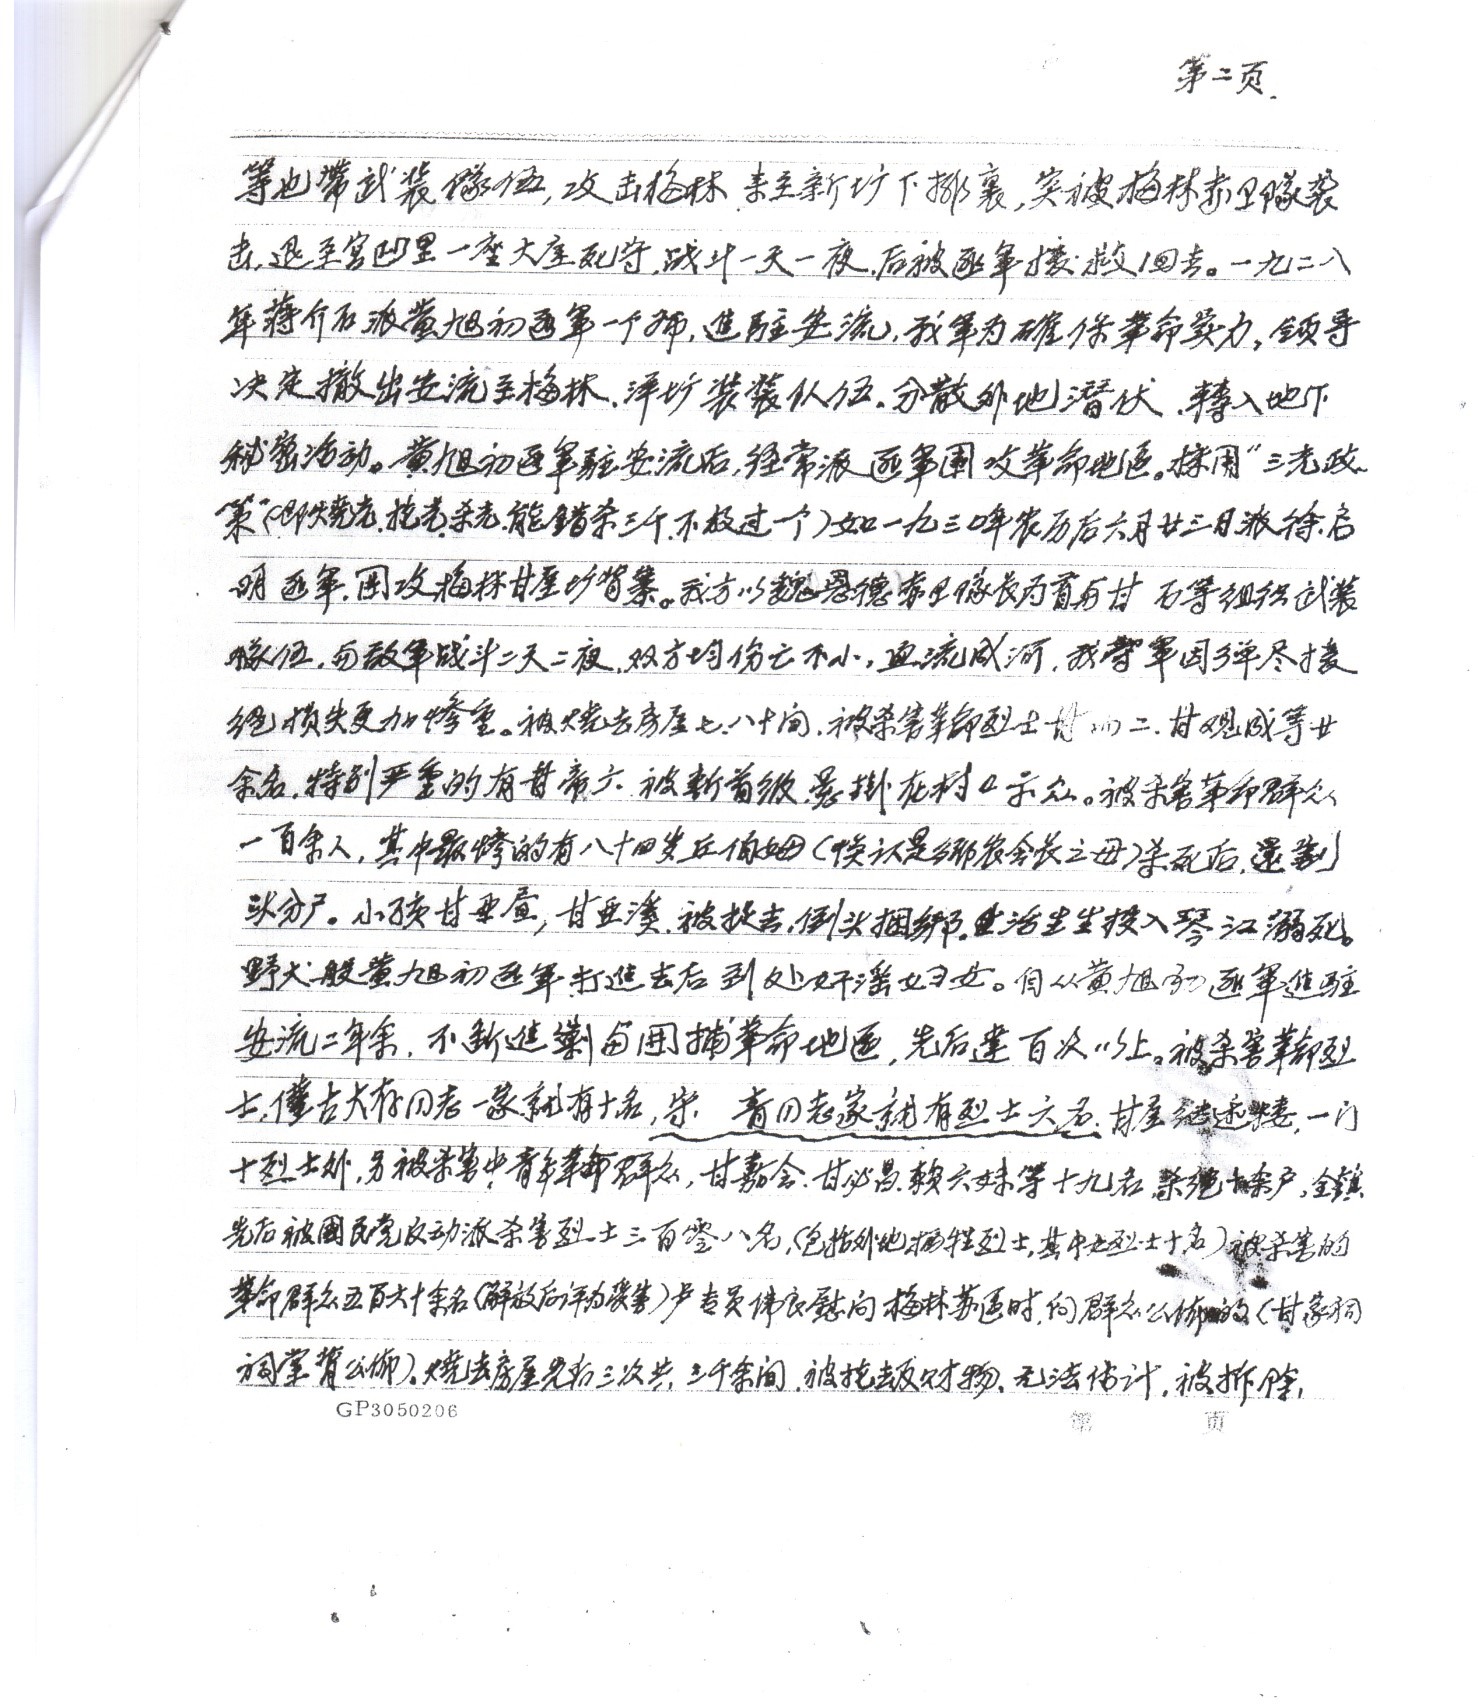 第二页.
等也带武装隊伍，攻击梅林，来至新圹下排裏，突被梅林赤卫隊袭
击，退至宫凹里一座大屋死守，战斗一天一夜，后被匪軍接救回去。一九二八
年蒋介石派黄旭初匪軍一个师，進駐安流，我軍为確保革命实力，领导
决定撤出安流至梅林、洋圹装装队伍，分散外地潜伏，轉入地下
秘密活动。黄旭初匪軍駐安流后，经常派匪軍围攻革命地区。採用“三光政
策”（即烧光、抢光、杀光，能錯杀三千，不放过一个）如一九三〇年农历后六月廿三日派徐启
明匪軍，围攻梅林甘屋圹背寨。我方以魏恩德赤卫隊长为首与甘 石等组织武装
隊伍，与敌軍战斗二天二夜，双方均伤亡不小，血流成河，我軍因弹尽接
绝损失更加惨重。被烧去房屋七、八十间，被杀害革命烈士甘 二、甘观成等廿
余名，特别严重的有甘帝六，被斬首级，悬掛在村口示众。被杀害革命群众
一百余人，其中最惨的有八十四岁丘伯姆（悞认是鄉农会长之母）杀死后，還割
头分尸。小孩甘亚昼，甘亚溪，被捉去，倒头捆绑，生活生生投入琴江溺死。
野犬般黄旭初匪軍打進去后到处奸滛妇女。自从黄旭初匪軍進駐
安流二年余，不断進剿与围捕革命地区，先后達百次以上。被杀害革命烈
士，僅古大存同志一家就有十名，宋 青同志家就有烈士六名，甘屋继述楼，一门
十烈士外，另被杀害中、青年革命群众，甘嘉会、甘必昌、赖六妹等十九名，杀绝十余户，全鎮
先后被國民党反动派杀害烈士三百零八名，（包括外地犧牲烈士，其中女烈士十名）被杀害的
革命群众五百六十余名（解放后评为受害）卢专员伟良慰问梅林苏区时，向群众公佈的（甘家祠
祠堂背公佈）。烧去房屋先后三次共，三千余间，被抢去财物，无法估计，被拆除，
GP3050206
第 页